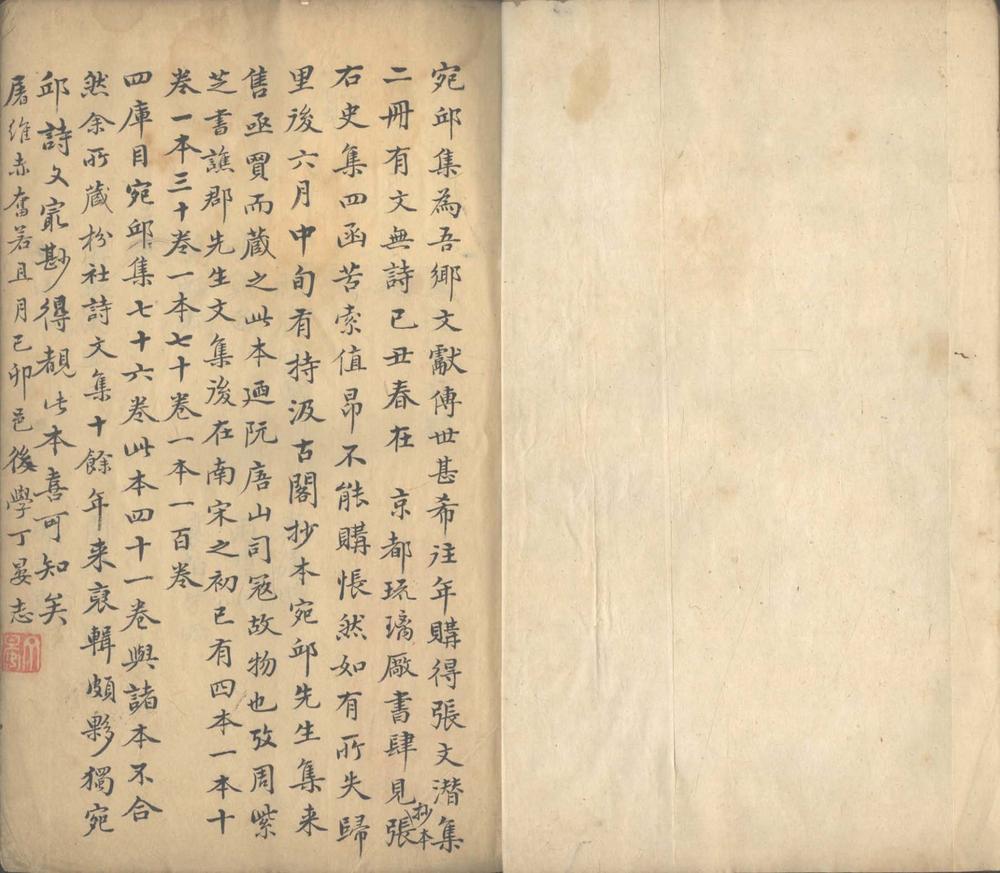 宛邱集為吾鄉文獻傳世甚希往年購得張文潛集
二冊有文無詩已丑春在　京都琉璃廠書肆見抄本張
右史集四函苦索值昂不能購悵然如有所失歸
里後六月中旬有持汲古閣抄本宛邱先生集来
售亟買而藏之此本廼阮唐山司寇故物也攷周紫
芝書譙郡先生文集後在南宋之初已有四本一本十
卷一本三十卷一本七十卷一本一百卷
四庫目宛邱集七十六卷此本四十一卷與諸本不合
然余所藏枌社詩文集十餘年来裒輯頗夥獨宛
邱詩文冣尠得覩此本喜可知矣
屠維赤奮若且月己卯邑後學丁晏志